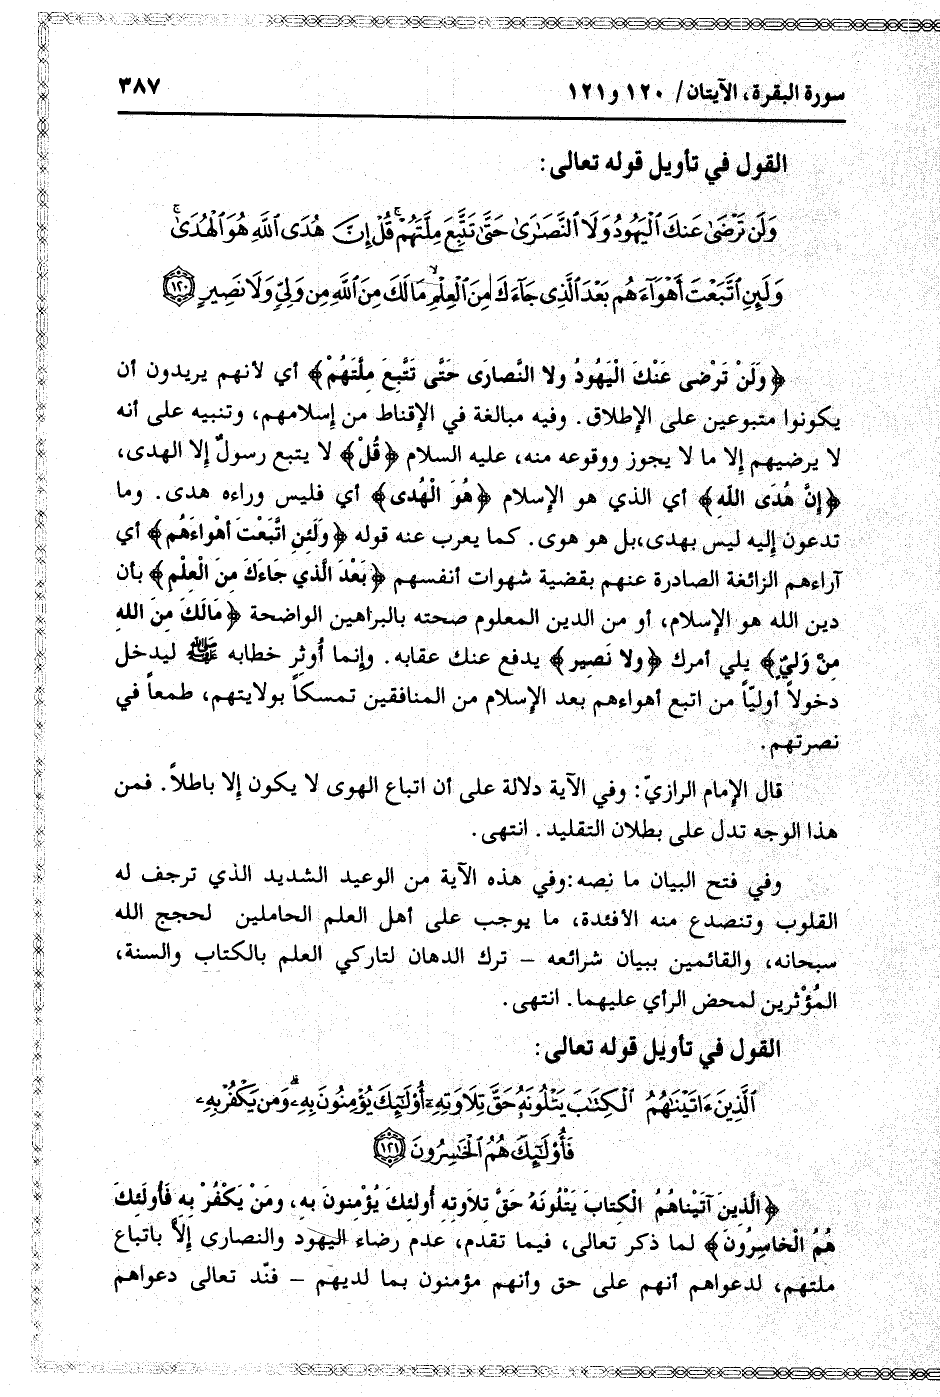 سورة البقرة، الآيتان/ ١٢٠ و١٢١
٣٨٧
القول في تأويل قوله تعالى:
وَلَن تَرْضَىٰ عَنكَ ٱلْيَهُودُ وَلَا ٱلنَّصَٰرَىٰ حَتَّىٰ تَتَّبِعَ مِلَّتَهُمْ ۗ قُلْ إِنَّ هُدَى ٱللَّهِ هُوَ ٱلْهُدَىٰ ۗ
وَلَئِنِ ٱتَّبَعْتَ أَهْوَآءَهُم بَعْدَ ٱلَّذِى جَآءَكَ مِنَ ٱلْعِلْمِ ۙ مَا لَكَ مِنَ ٱللَّهِ مِن وَلِيٍّ وَلَا نَصِيرٍ ١٢٠
﴿وَلَنْ تَرْضى عَنْكَ الْيَهُودُ ولا النَّصارَى حَتَّى تَتَّبِعَ مِلَّتَهُمْ﴾ أي لأنهم يريدون أن
يكونوا متبوعين على الإطلاق. وفيه مبالغة في الإقناط من إسلامهم، وتنبيه على أنه
لا يرضيهم إلا ما لا يجوز ووقوعه منه، عليه السلام ﴿قُلْ﴾ لا يتبع رسولٌ إلا الهدى،
﴿إنَّ هُدَى اللَّهِ﴾ أي الذي هو الإسلام ﴿هُوَ الْهُدى﴾ أي فليس وراءه هدى. وما
تدعون إليه ليس بهدى،بل هو هوى. كما يعرب عنه قوله ﴿ولَئنِ اتَّبَعْتَ أهْواءَهُم﴾ أي
آراءهم الزائغة الصادرة عنهم بقضية شهوات أنفسهم ﴿بَعْدَ الَّذي جاءَكَ مِنَ الْعِلْمِ﴾ بأن
دين الله هو الإسلام، أو من الدين المعلوم صحته بالبراهين الواضحة ﴿مَالَكَ مِنَ اللهِ
مِنْ وَليٍّ﴾ يلي أمرك ﴿ولا نَصِير﴾ يدفع عنك عقابه. وإنما أُوثِر خطابه ﷺ ليدخل
دخولاً أوليّاً من اتبع أهواءهم بعد الإسلام من المنافقين تمسكاً بولايتهم، طمعاً في
نصرتهم.
قال الإمام الرازيّ: وفي الآية دلالة على أن اتباع الهوى لا يكون إلا باطلاً. فمن
هذا الوجه تدل على بطلان التقليد. انتهى.
وفي فتح البيان ما نصه:وفي هذه الآية من الوعيد الشديد الذي ترجف له
القلوب وتنصدع منه الأفئدة، ما يوجب على أهل العلم الحاملين لحجج الله
سبحانه، والقائمين ببيان شرائعه – ترك الدهان لتاركي العلم بالكتاب والسنة،
المُؤْثرين لمحض الرأي عليهما. انتهى.
القول في تأويل قوله تعالى:
ٱلَّذِينَ ءَاتَيْنَٰهُمُ ٱلْكِتَٰبَ يَتْلُونَهُۥ حَقَّ تِلَاوَتِهِۦٓ أُو۟لَٰٓئِكَ يُؤْمِنُونَ بِهِۦ ۗ وَمَن يَكْفُرْ بِهِۦ
فَأُو۟لَٰٓئِكَ هُمُ ٱلْخَٰسِرُونَ ١٢١
﴿الَّذِينَ آتَيْناهُمُ الْكِتابَ يَتْلُونَهُ حَقَّ تِلاوَتِهِ أُولئِكَ يُؤْمِنونَ بهِ، ومَنْ يَكْفُرْ بهِ فَأُولَئِكَ
هُمُ الْخاسِرُونَ﴾ لما ذكر تعالى، فيما تقدم، عدم رضاء اليهود والنصارى إلاَّ باتباع
ملتهم، لدعواهم أنهم على حق وأنهم مؤمنون بما لديهم – فنّد تعالى دعواهم